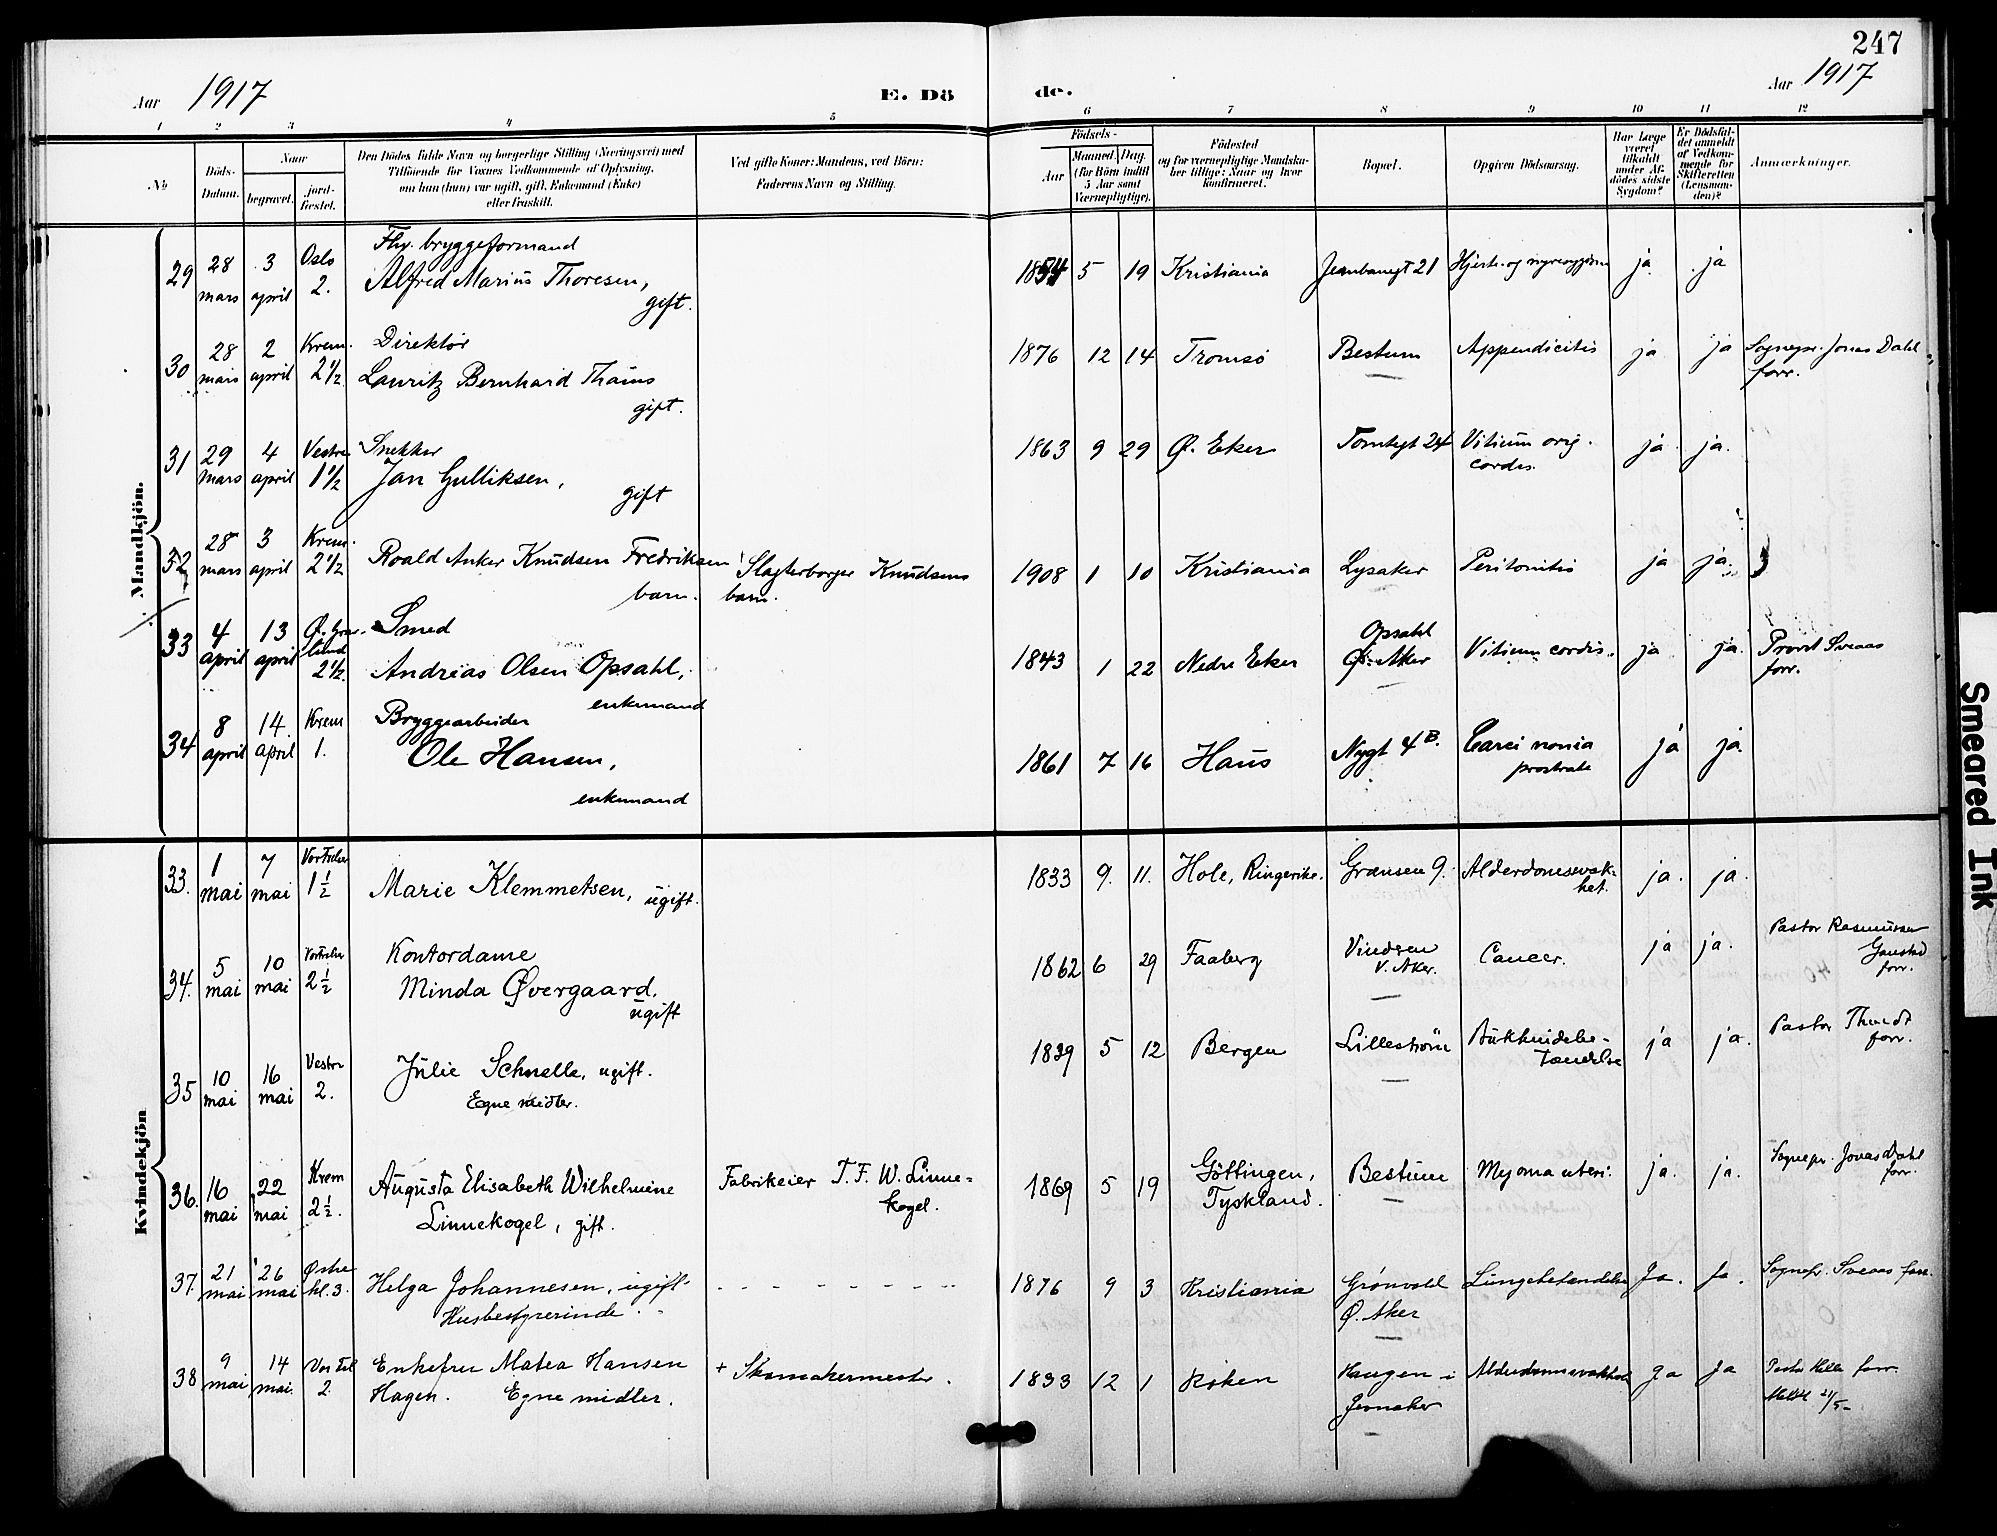 247
Aar 1917
E. Dö
de.
Aar 1917
1 2 3 4 5 6 7 8 9 10 11 12
No
Döds-Datum.
Naar
begravet.
jord-fæstet.
Den Dödes fulde Navn og borgerlige Stilling (Næringsvei) med
Tilföiende for Voxnes Vedkommende af Oplysning,
om han (hun) var ugift, gift, Enkemand (Enke)
eller fraskilt.
Ved gifte Koner: Mandens, ved Börn:
Faderens Navn og Stilling.
Födsels-
Aar
Maaned. Dag.
(for Börn indtil
5 Aar samt
Værnepligtige).
Födested
og for værnepligtige Mandska-
ber tillige: Naar og hvor
konfirmeret.
Bopæl.
Opgiven Dödsaarsag.
Har Læge
været
tilkaldt
under Af-
dödes sidste
Sygdom?
Er Dödsfal-
det anmeldt
af Vedkom-
mende for
Skifteretten
(Lensman-
den)?
Anmærkninger.
Mandkjön.
29 28 mars 3 april Oslo 2. Fhv. bryggeformand
Alfred Marius Thoresen,
gift.
1854 5 19 Kristiania Jernbanegt 21 Hjerte- og nyresygdom ja. ja
30 28 mars 2 april Krem. 2 1/2 Direktör
Lauritz Bernhard Thams
gift.
1876 12 14 Tromsø Bestum Appendicitis ja ja Sognepr. Jonas Dahl
forr.
31 29 mars 4 april Vestre 1 1/2 Snekker
Jan Gulliksen,
gift
1863 9 29 Ø. Eker Tomtegt 24 Vitium orig.
cordis. ja. ja.
32 28 mars 3 april Krem. 2 1/2 Roald Anker Knudsen Fredriksen
barn.
Slagterborger Knudsens
barn.
1908 1 10 Kristiania Lysaker Peritonitis ja ja.
33 4 april 13 april Ø. Grav-
lund
2 1/2. Smed
Andreas Olsen Opsahl,
enkemand
1843 1 22 Nedre Eker Opsahl
Ø. Aker Vitium cordis. ja ja. Provst Sveaas
forr.
34 8 april 14 april Krem 1. Bryggearbeider
Ole Hansen,
enkemand
1861 7 16 Haus Nygt 4 B. Carci noma
prostrate ja ja.
Kvindekjön
33. 1 mai 7 mai Vor Frelser 1 1/2 Marie Klemmetsen, ugift.
1833 9. 11. Hole, Ringerike. Grænsen 9. Alderdomssvak-
het. ja. ja.
34. 5 mai 10 mai Vor Frelser 2 1/2 Kontordame
Minda Øvergaard.
ugift
1862 6 29 Faaberg Vindern
V. Aker. Cancer. ja ja. Pastor Rasmussen
Gaustad
forr.
35 10 mai 16 mai Vestre 2. Julie Schnelle, ugift.
Egne midler.
1839 5 12 Bergen Lilleström Bukhindebe-
tændelse ja ja. Pastor
forr.
36. 16 mai 22 mai Krem 2 1/2. Augusta Elisabeth Wilhelmine
Linnekogel, gift.
Fabrikeier T. F. W. Linne-
kogel.
1869 5 19 Göttingen,
Tyskland. Bestum Myoma uteri. ja. ja. Sognepr. Jonas Dahl
forr.
37. 21 mai 26 mai Østre kl. 3. Helga Johannesen, ugift
Husbestyrerinde
1876 9 3 Kristiania Grönvold
Ø. Aker Lungebetændelse Ja. Ja. Sognepr. Sveaas forr.
38 9 mai 14 mai. Vor Frel 2. Enkefru Matea Hansen
Hagen. Egne midler.
+ Skomakermester.
1833 12 1 Röken Haugen i
Jevnaker Alderdomssvakhet ja ja Pastor Helle forr.
Meldt 21/5-
Smeared Ink